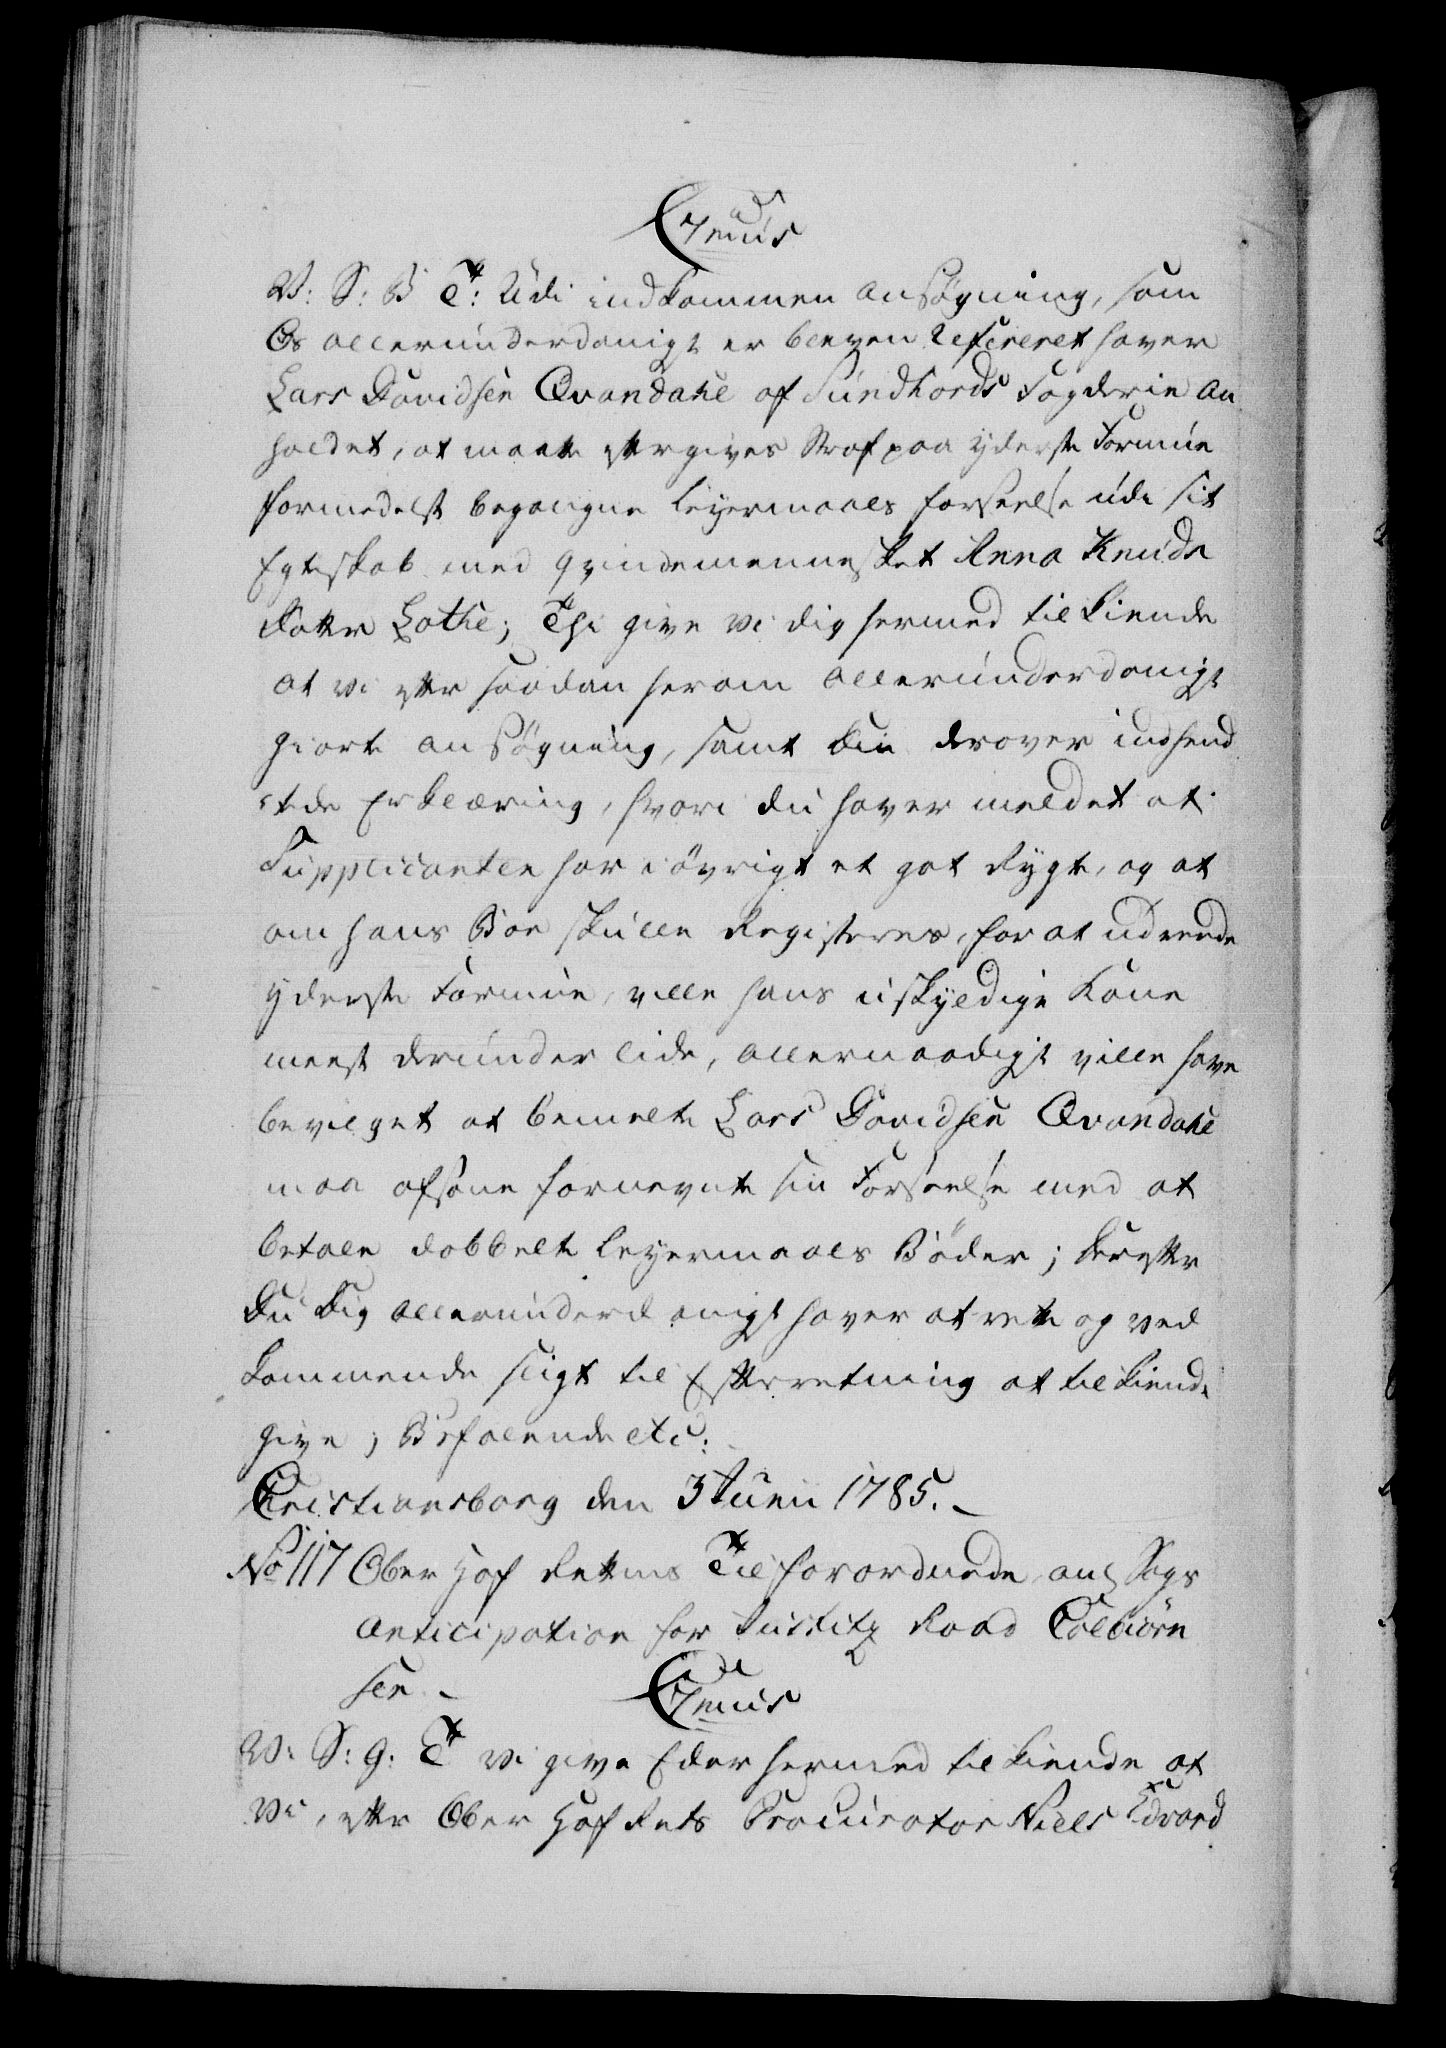 C 7mus
V: S: B T: Udi indkommen ansøgning, som
Os allerunderdanigt er bleven refereret haver
Lars Davidsen Qvandahl af Sundhords Fogderie an
holdet, at maatte eftergives Straf paa yderste Formue
formedelst begangne Leyermaals forseelse udi sit
Egteskab med qvindemennesket Anna Knuds
datter Lothe; Thi give vi dig hermed tilkiende
at vi efter saadan herom allerunderdanigt
giorte ansøgning, samt din derover indsend
te Erklæring, hvori du haver meldet at
Supplicanten har i øvrigt et got Rygte, og at
om hans Boe skulle Registeres, for at udreede
yderste Formue, ville hans uskyldige Kone
meest derunder lide, allernaadigst ville have
bevilget at bemelte Lars Davidsen Qvandahl
maa afsone fornevnte sin Forseelse med at
betale dobbelt Leyermaals Bøder; derefter
du dig allerunderdanigst haver at rette og ved
kommende sligt til Efterretning at tilkiende
give; Befalende etc:
Christiansborg den 3 Junii 1785.
No 117 Ober Hof Rettens Tilforordnede, ang Sags
Anticipation for Justitz Raad Colbiørn
sen
C 7mus
V: S: G: T vi give Eder hermed tilkiende at
Vi, efter Ober Hof Rets Procurator Niels Edvard